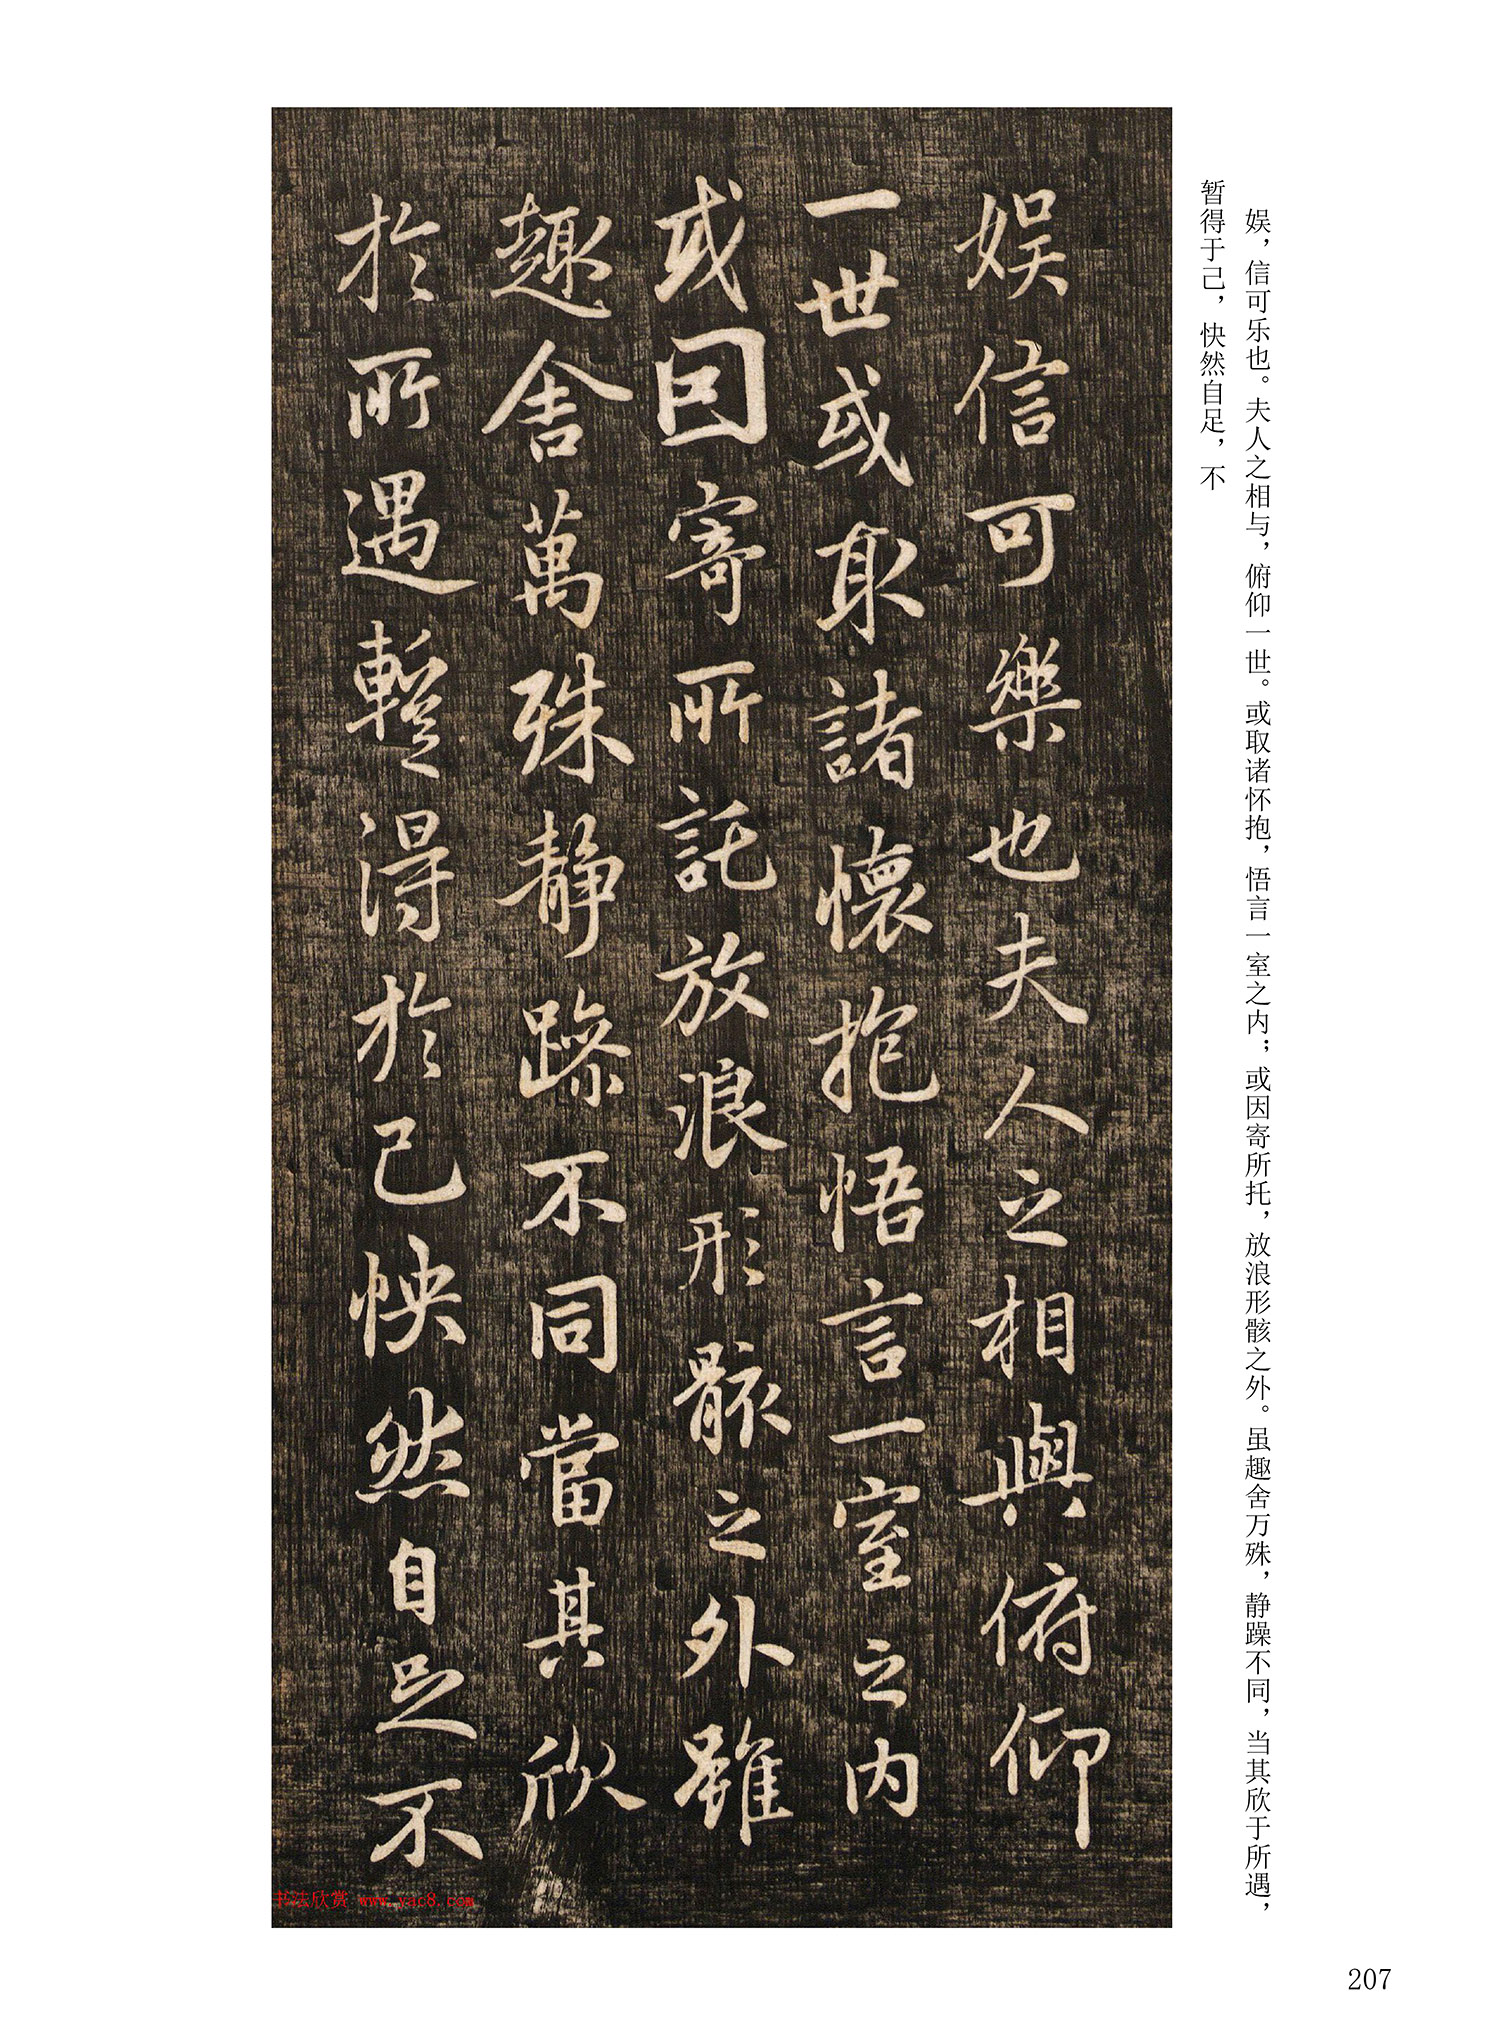 娱，信可乐也。夫人之相与，俯仰一世。或取诸怀抱，悟言一室之内；或因寄所托，放浪形骸之外。虽趣舍万殊，静躁不同，当其欣于所遇，
暂得于己，快然自足，不
娱信可樂也夫人之相與俯仰
一世或取諸懷抱悟言一室之内
或因寄所託放浪形骸之外雖
趣舍萬殊静躁不同當其欣
於所遇暫得於己怏然自足不
书法欣赏 www.yac8.com
207